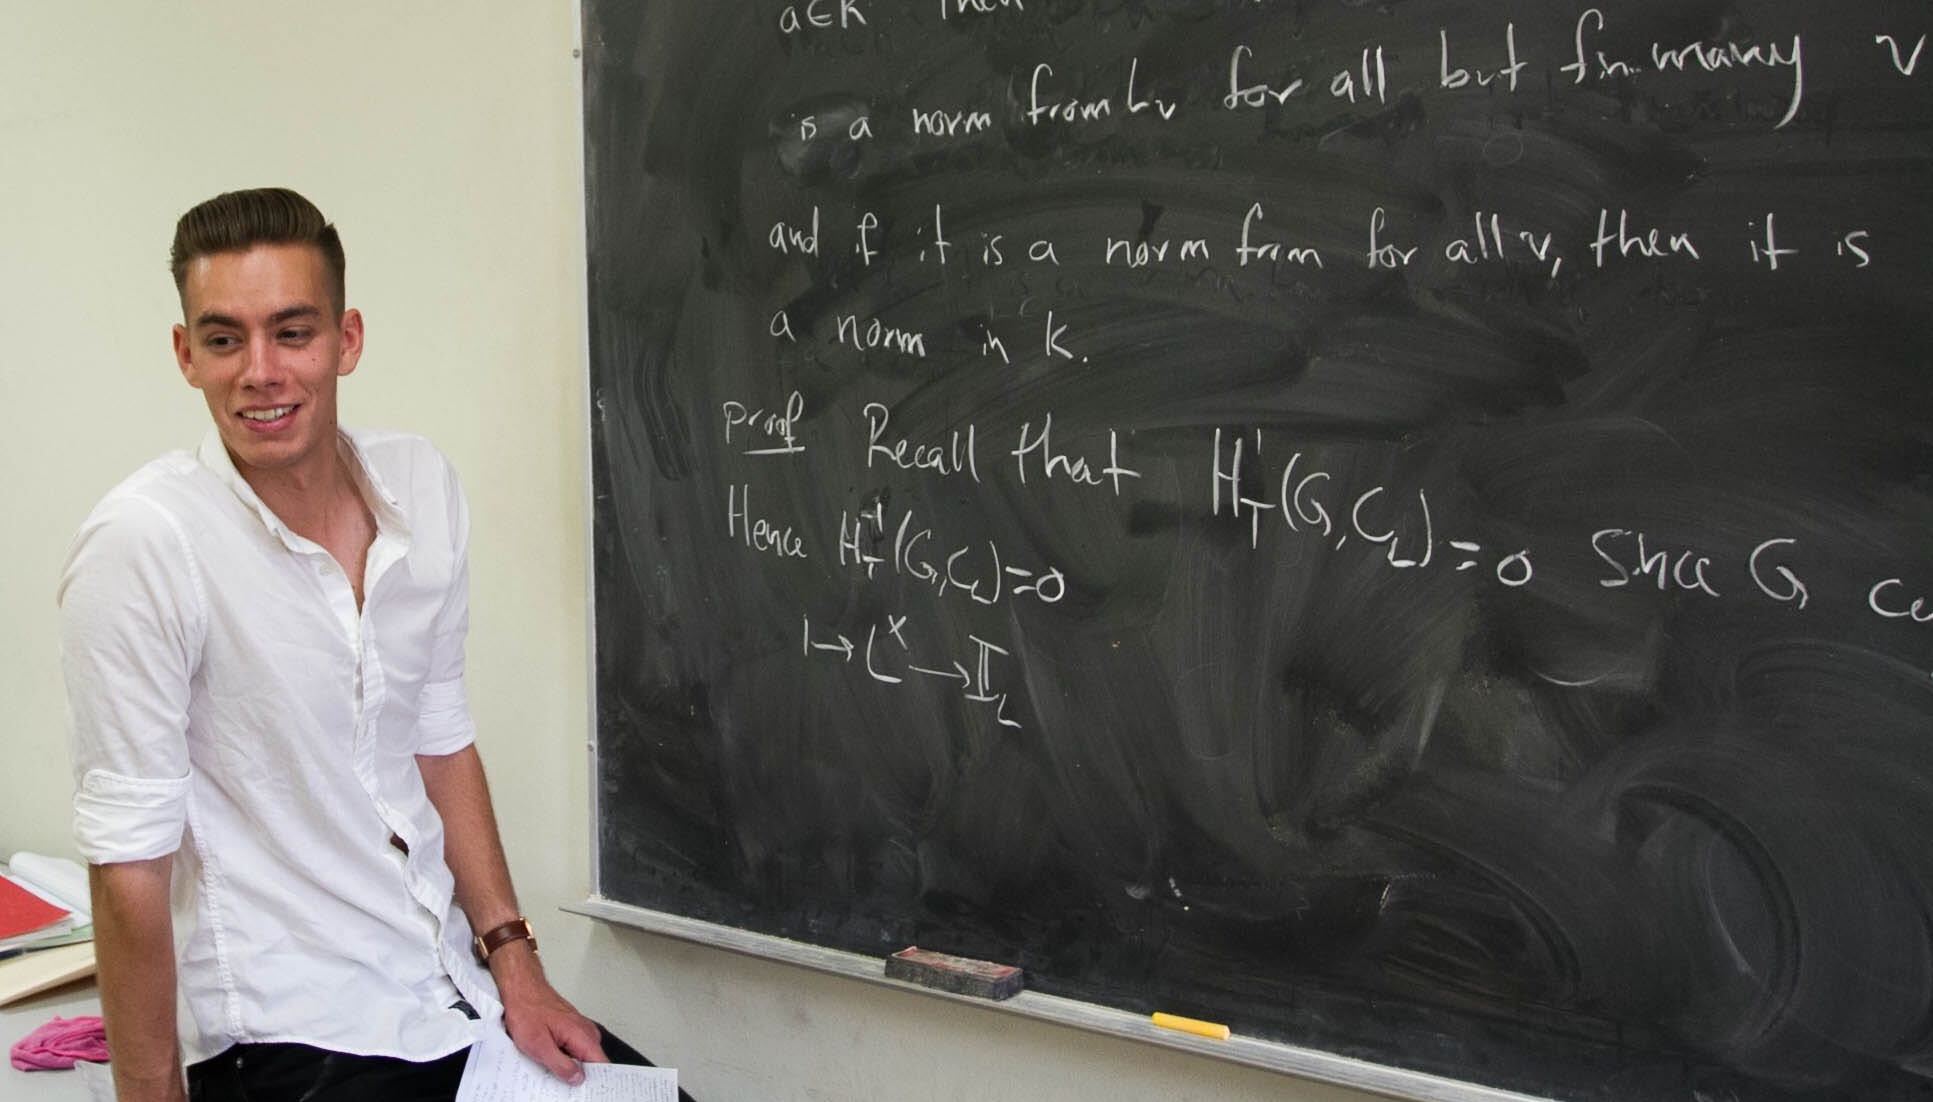 a∈K Then
is a norm from Lv for all but fin. many v
and if it is a norm from for all v, then it is
a norm in K.
Proof Recall that H¹_T(G, C_L) = 0 Since G
Hence H⁻¹_T(G, C_L) = 0
1 → L^× → 𝕀_L